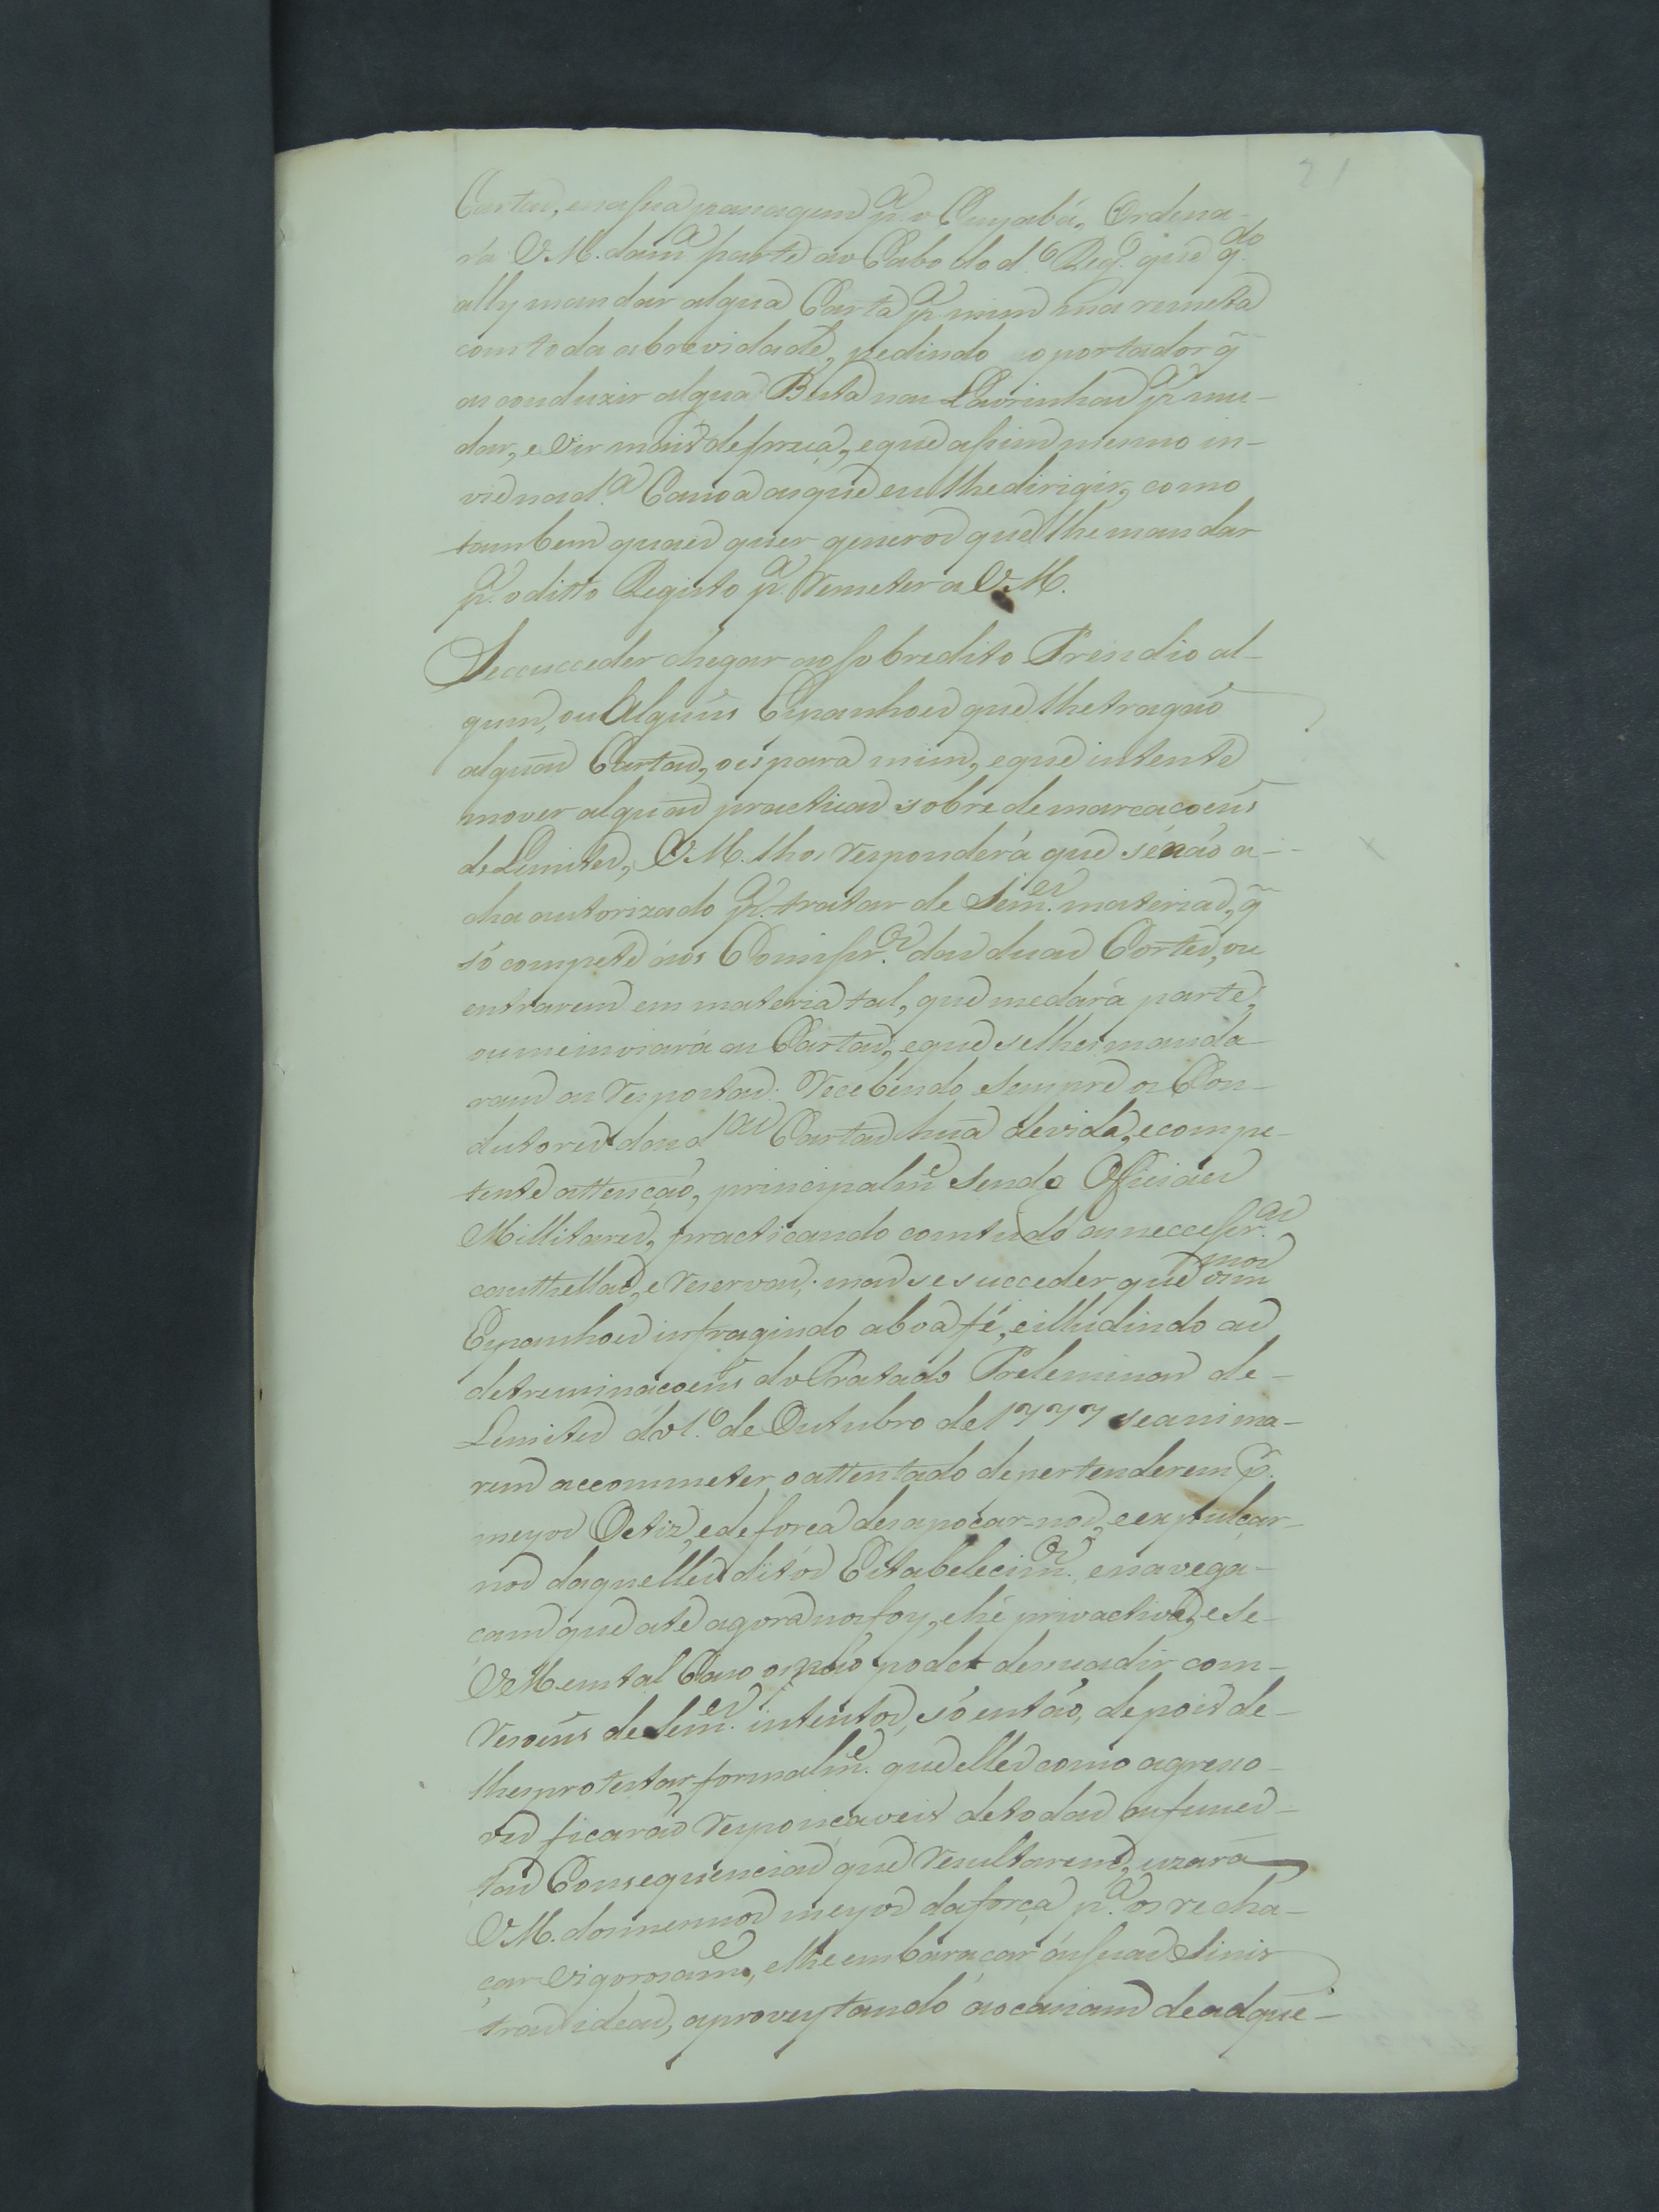 21
Cartas, e na sua passagem p.ª o Cuyabá, Ordena-
rá V.M. da m.ª parte ao Cabo do d.º Reg.º que q.do
ally mandar algua Carta p.ª mim ma remeta
com toda a brevidade, pedindo o portador q̃
as conduzir algua Besta nas Lavrinhas p.ª mu-
dar, e vir mais depreça, e que assim mesmo in-
vie na d.ª Canoa as que eu lhe dirigir, como
tambem quaes quer generos que lhe mandar
p.ª o ditto Registo p.ª remeter a V.M.
Se succeder chegar ao sobredito Prezidio al-
gum, ou Alguñs Espanhoes que lhe tragaõ
alguas Cartas, ou para mim, e que intente
mover alguas practicas sobre demarcacoeñs
de Limites, V.M. lhos responderá que se naõ a-
cha autorizado p.ª tratar de Sem.es materias, q̃
só compete áos Comissr.os das duas Cortes, ou
entrarem em materia tal, que me dará parte,
ou me inviará as Cartas, e que se lhes manda-
ram as respostas. Recebendo sempre os Con-
dutores das d.as Cartas hua devida, e compe-
tente attençaõ, principalm.e sendo Officiaes
Millitares, practicando com tudo as neccessr.as
cauthellas, e reservas; mas se succeder que os m.mos
Espanhoes infragindo a boa fé, e illudindo as
detreminacoeñs do Tratado Preleminar de-
Limites do 1.º de Outubro de 1777 se anima-
rem accommeter o attentado de pertenderem p.r
meyos Ostiz, e de força desapoçar-nos, e expulçar-
nos daquelles ditos Estabelecim.os, e navega-
cam que ate agora nos foy, e hé privactiva, e se-
V.M em tal Cazo os naõ poder dessuadir com-
rezoeñs de Sem.es intentos, só entaõ, depois de-
lhes protestar formalm.e que elles como agresso-
res ficaraõ responçaveis de todas as funes-
tas Consequencias que resultarem, uzará
V.M. dos mesmos meyos da força p.ª os recha-
çar vigorozam.e, e lhe embaraçar ás suas Sinis-
tras ideas, aproveytando a ocaziam de adque-